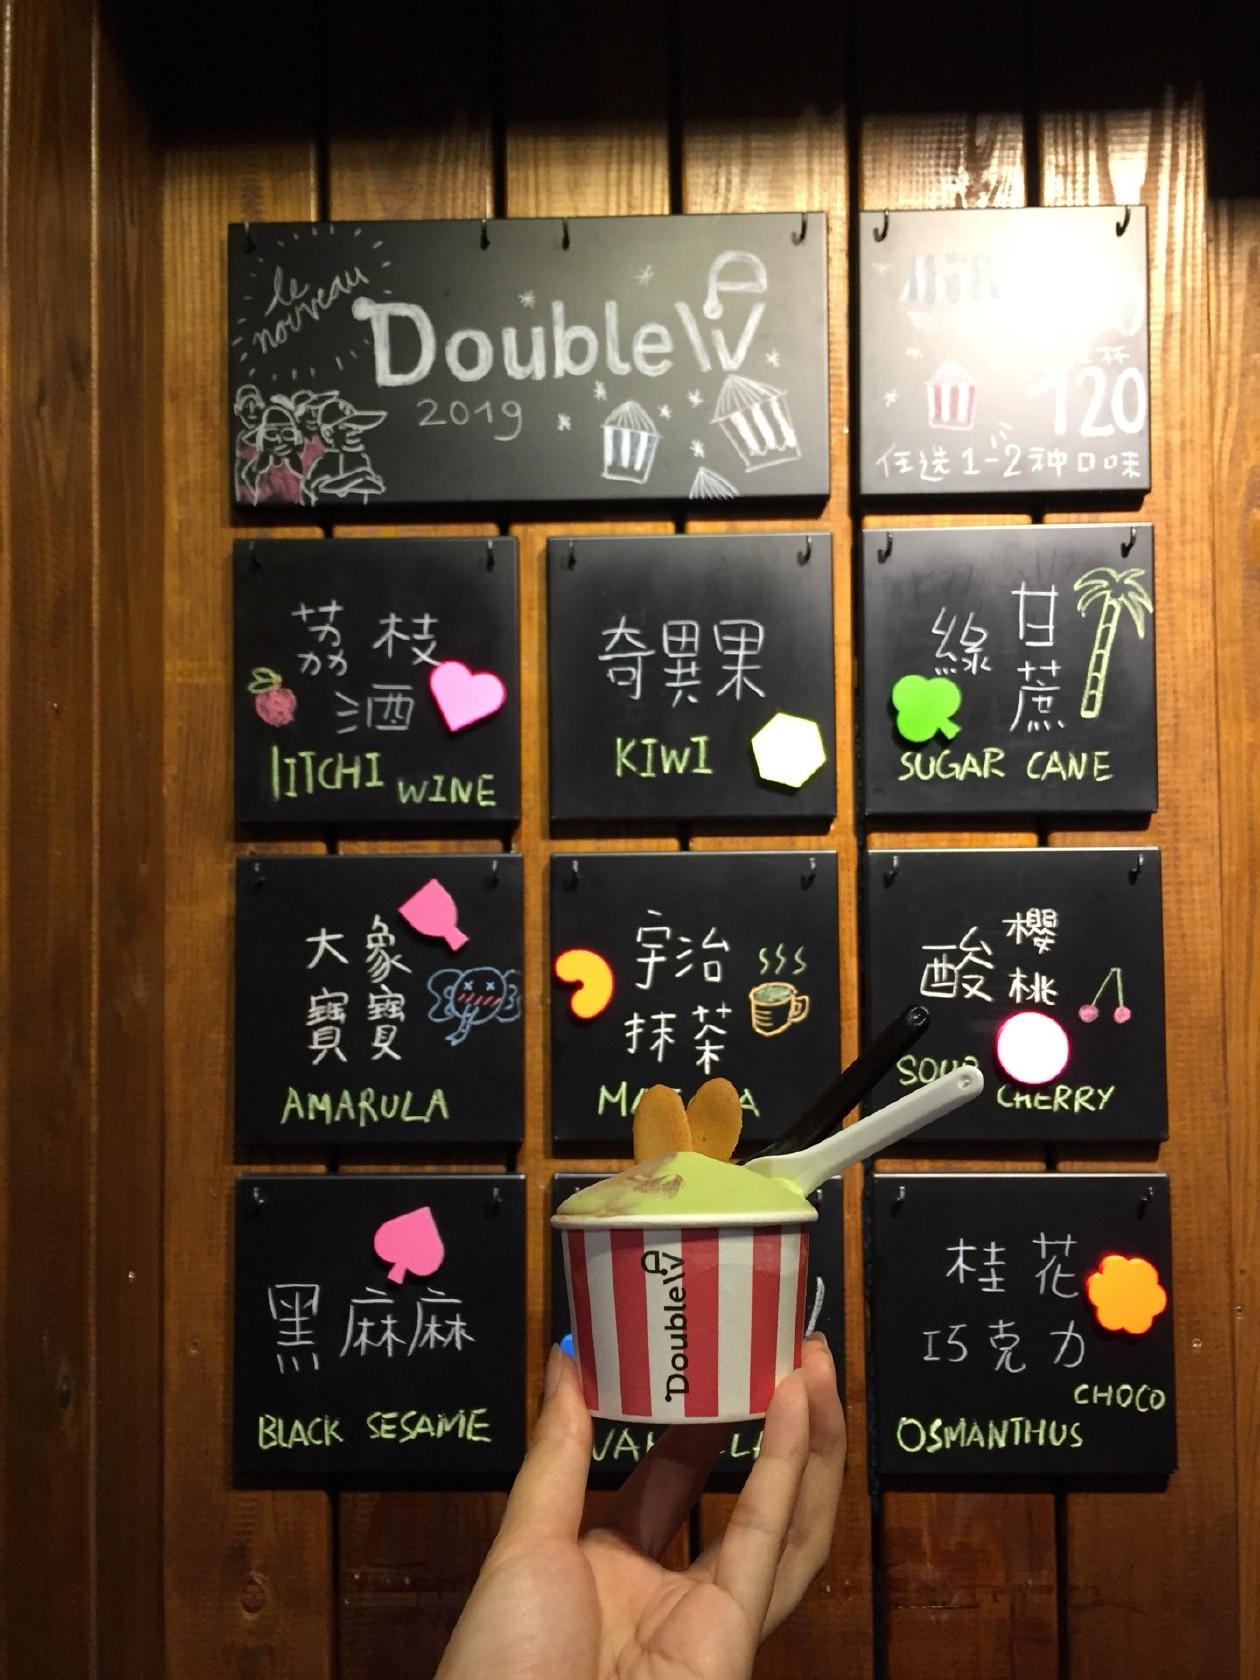 le
nouveau
Double W
2019
杯
120
任选1-2种口味
荔枝
酒
lITCHI WINE
奇異果
KIWI
綠甘
蔗
SUGAR CANE
大象
寶寶
AMARULA
宇治
抹茶
酸櫻
桃
CHERRY
黑麻麻
BLACK SESAME
DoubleW
桂花
巧克力
CHOCO
OSMANTHUS